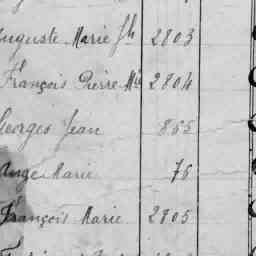 Auguste Marie Jh 2803
François Pierre Mie 2804
Georges Jean 855
Ange Marie 76
François Marie 2805